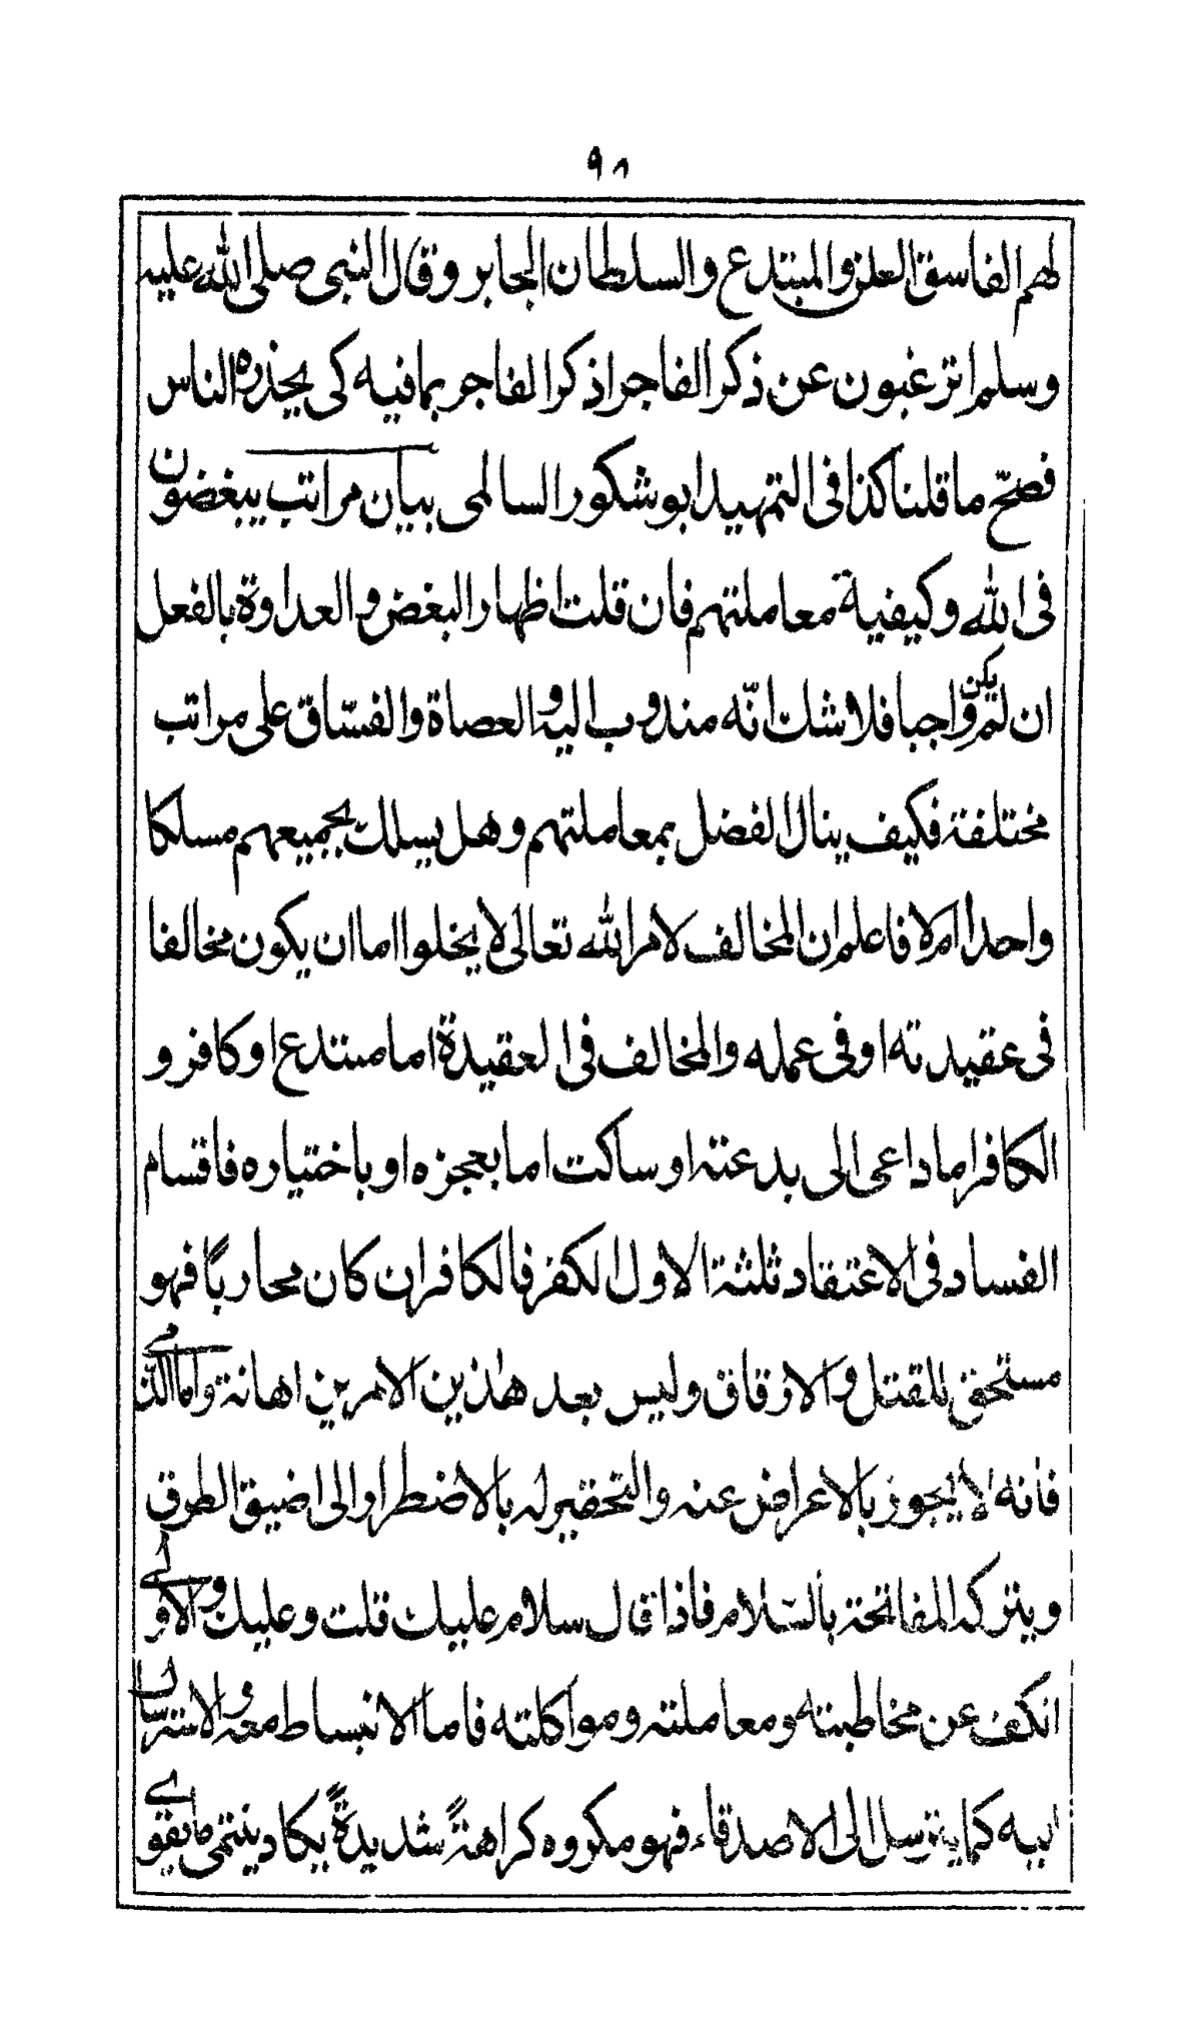 ٩٨
لهم الفاسق المعلن والمبتدع والسلطان الجابر وقال النبى صلى الله عليه
وسلم اترغبون عن ذكر الفاجر اذكر الفاجر بما فيه كى يحذره الناس
فصحّ ما قلنا كذا فى التمهيد ابو شكور السالمى بيان مراتب يبغضون
فى الله وكيفية معاملتهم فان قلت اظهار البغض والعداوة بالفعل
ان لم يكن واجبا فلا شك انّه مندوب اليه والعصاة والفسّاق على مراتب
مختلفة فكيف ينال الفضل بمعاملتهم وهل يسلك بجميعهم مسلكا
واحدا ام لا فاعلم ان المخالف لامر الله تعالى لا يخلوا اما ان يكون مخالفا
فى عقيدته او فى عمله والمخالف فى العقيدة اما مبتدع او كافر و
الكافر اما داعى الى بدعته او ساكت اما بعجزه او باختياره فاقسام
الفساد فى الاعتقاد ثلثة الاول الكفر فالكافر ان كان محاربًا فهو
مستحق للقتل والارقاق وليس بعد هٰذين الامرين اهانة واما الذّمى
فانه لا يجوز بالاعراض عنه والتحقير له بالاضطرار الى اضيق الطرق
ويترك المفاتحة بالسّلام فاذا قال سلام عليك قلت وعليك والاولى
انكف عن مخاطبته ومعاملته ومواكلته فاما الانبساط معه والاسترسال
اليه كما يترسل الى الاصدقاء فهو مكروه كراهةً شديدةً يكاد ينتهى ما يقوى